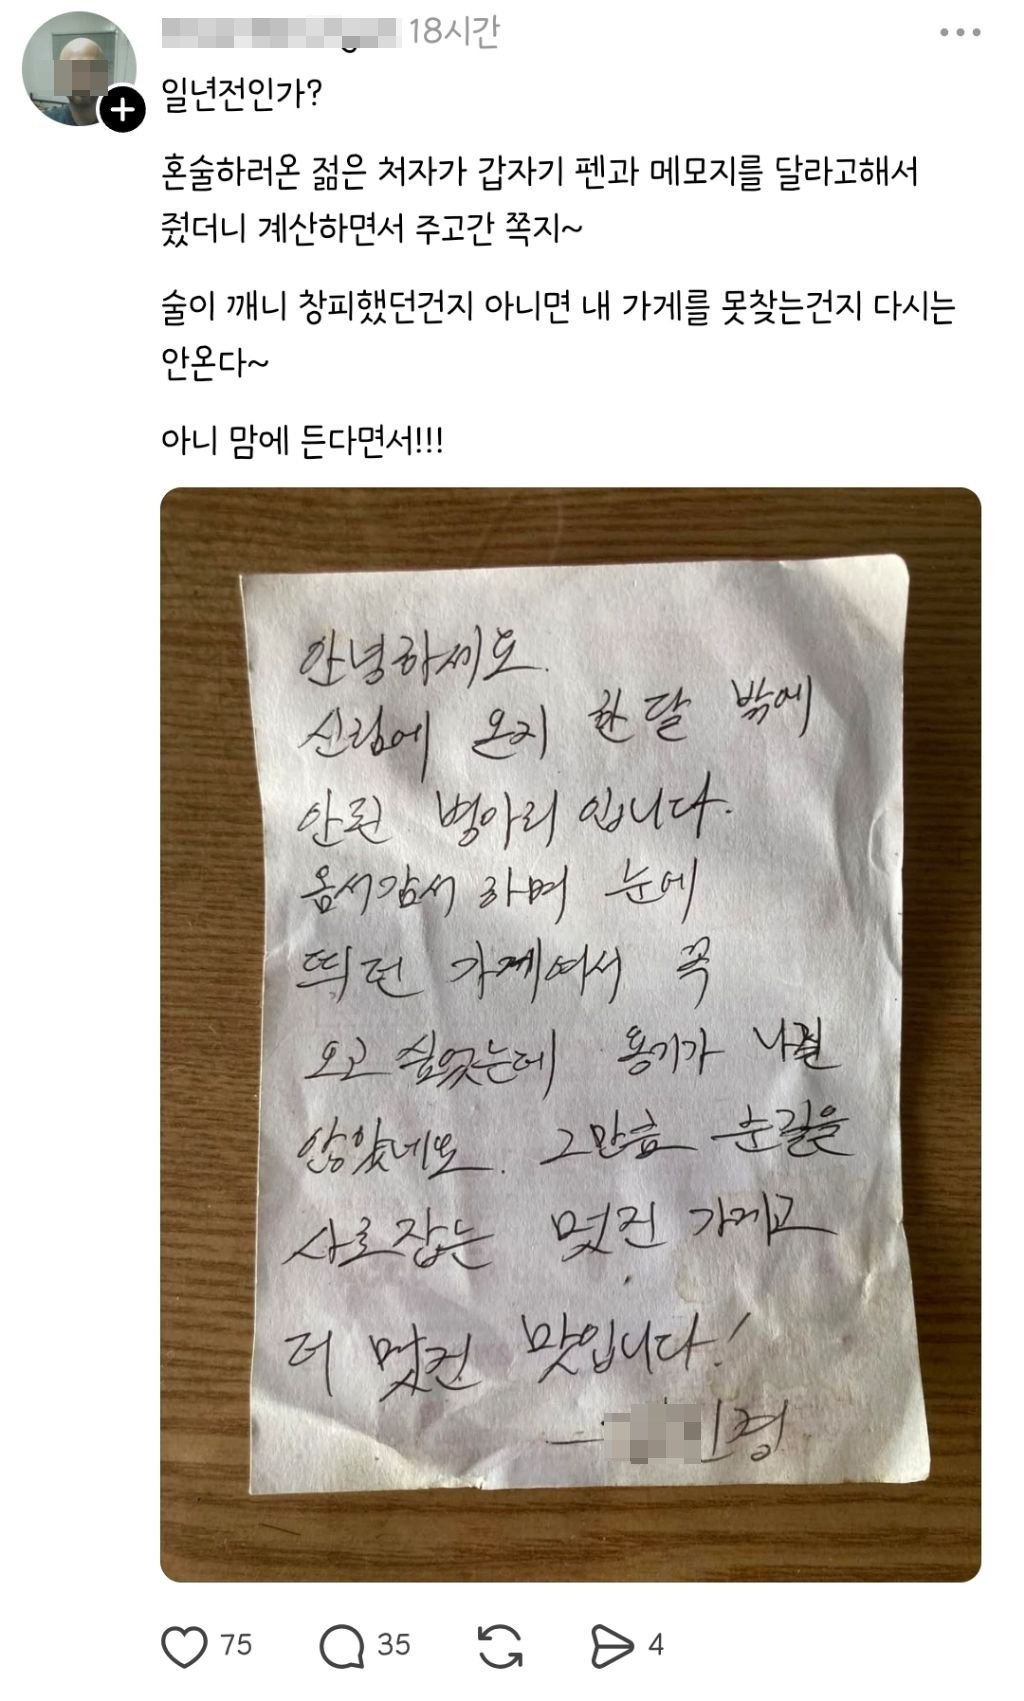 18시간
일년전인가?
혼술하러온 젊은 처자가 갑자기 펜과 메모지를 달라고해서
줬더니 계산하면서 주고간 쪽지~
술이 깨니 창피했던건지 아니면 내 가게를 못찾는건지 다시는
안온다~
아니 맘에 든다면서!!!
안녕하세요.
신림에 온지 한 달 밖에
안된 병아리 입니다.
옴서감서 하며 눈에
띄던 가게여서 꼭
오고 싶었는데 용기가 나질
않았네요. 그만큼 눈길을
사로잡는 멋진 가게고
더 멋진 맛입니다!
75 35 4